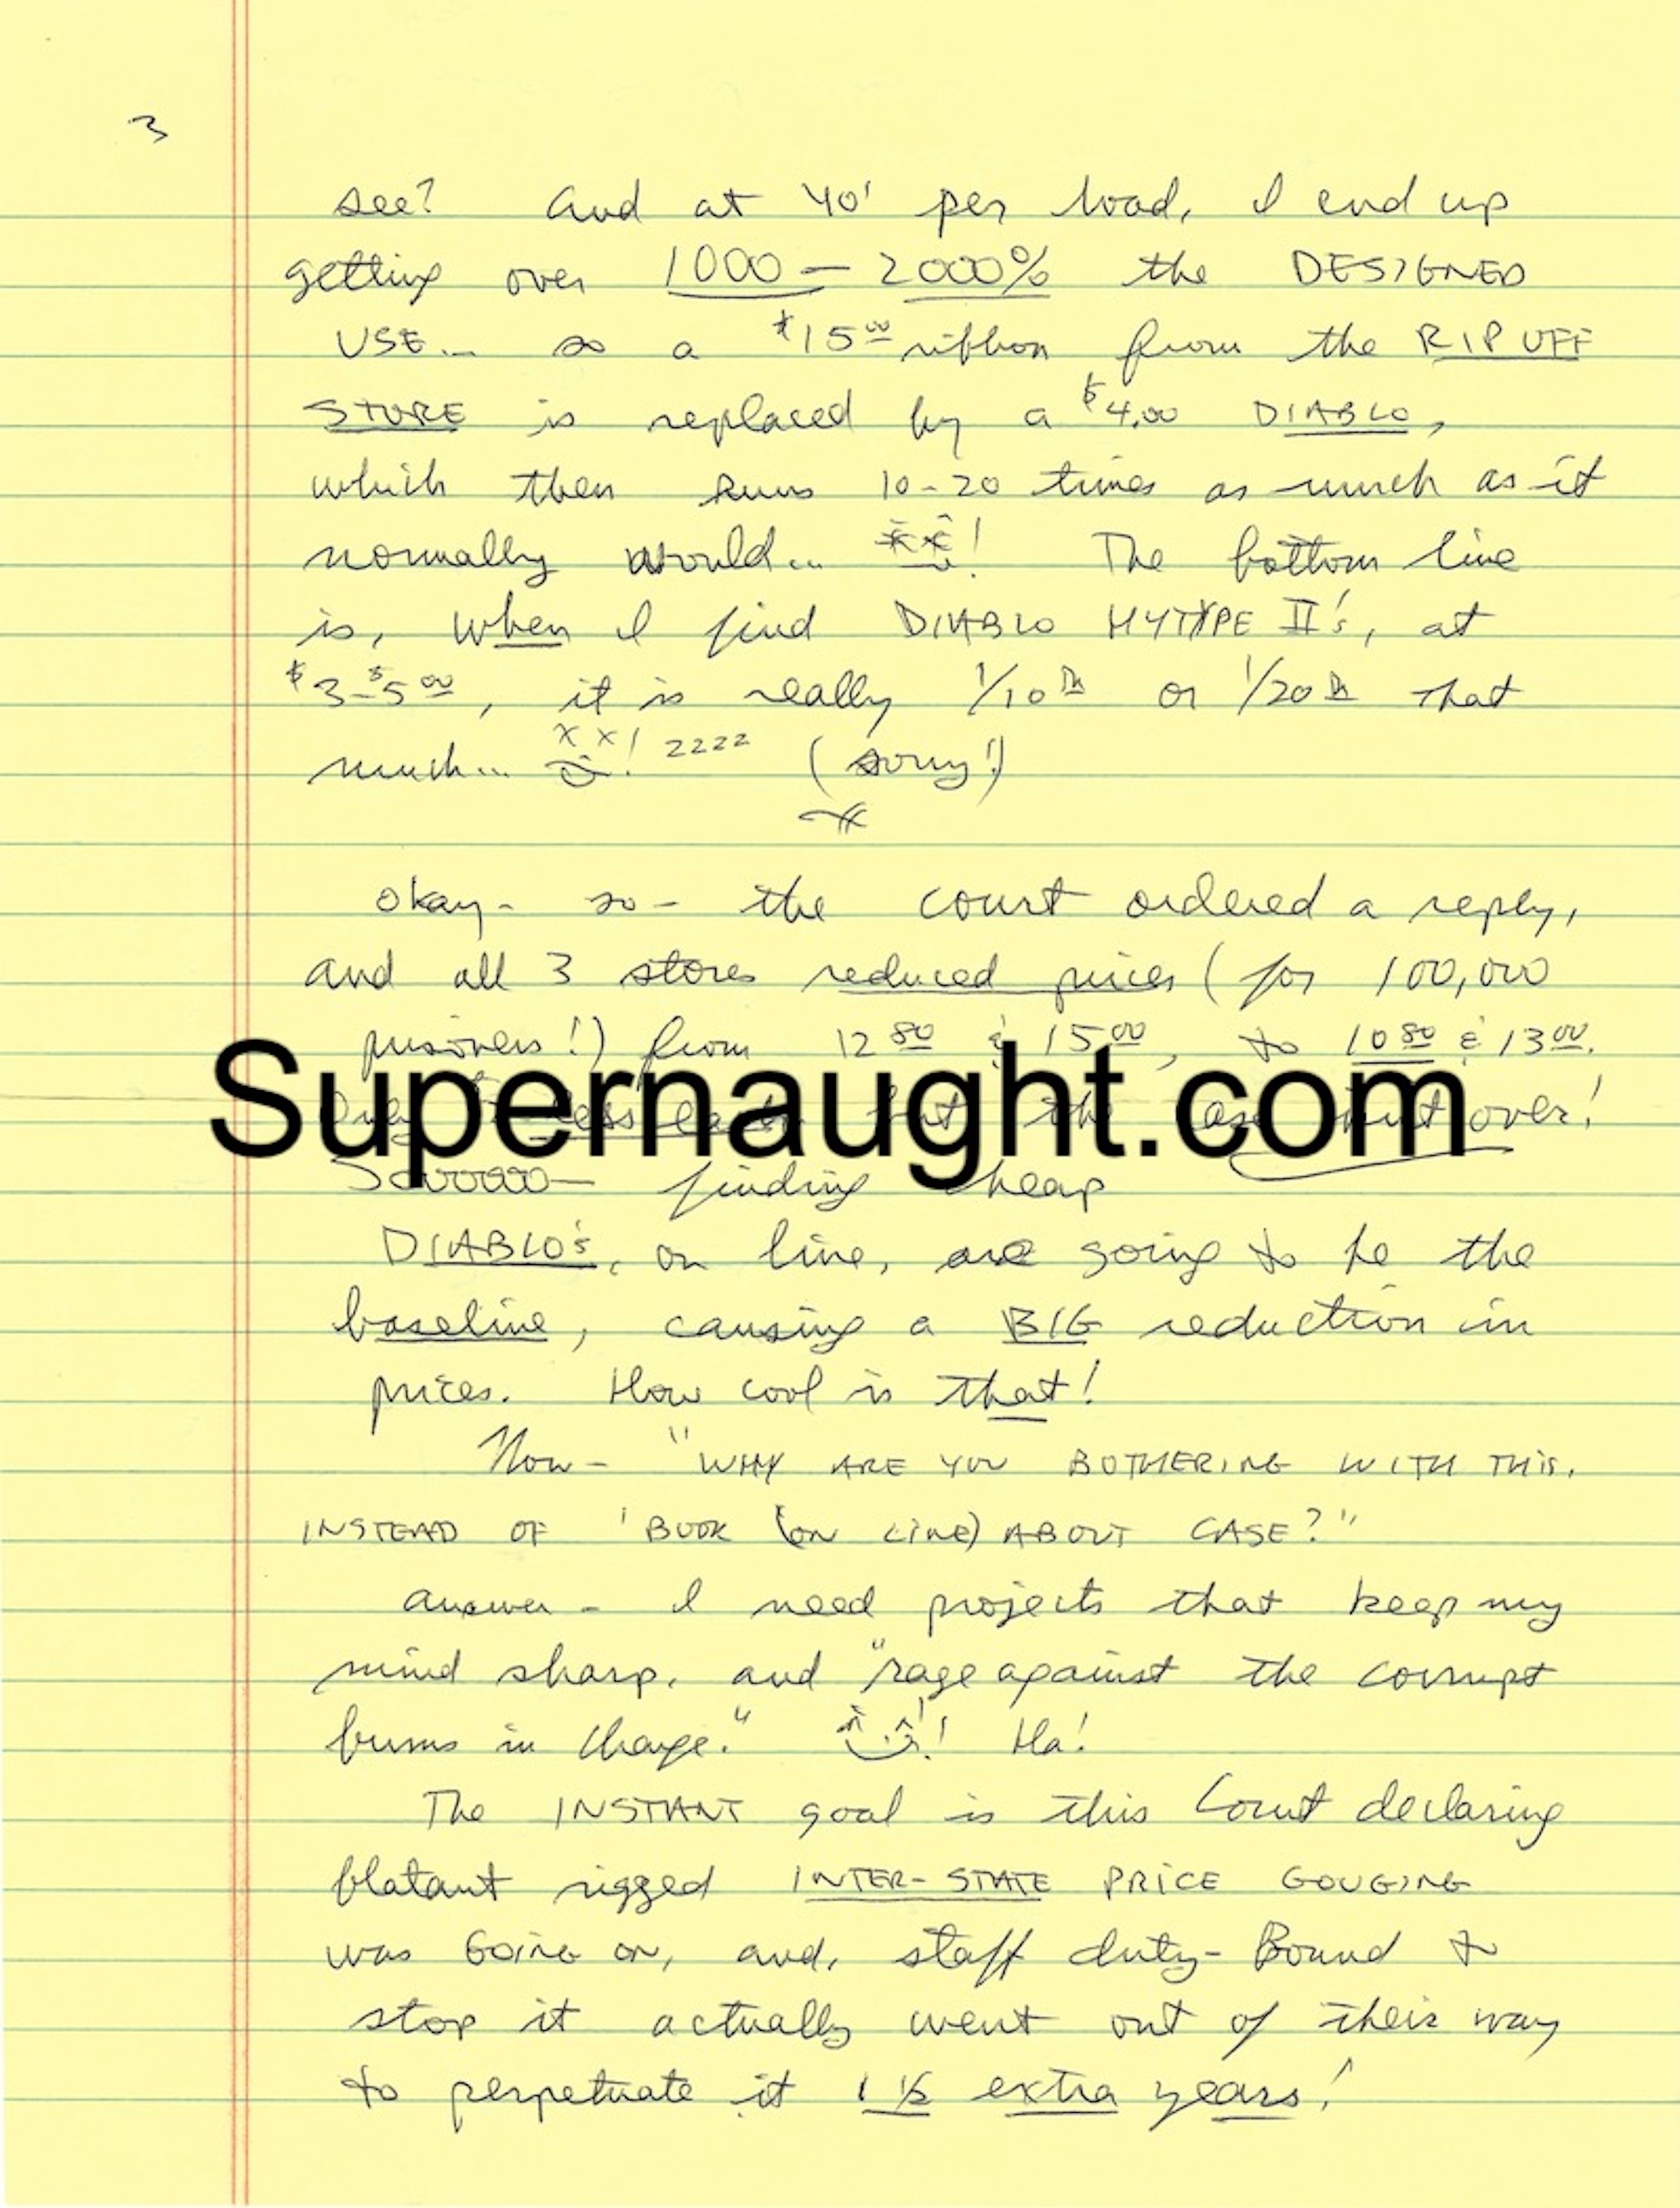 3
see? And at 40' per load, I end up
getting over 1000 – 2000% the DESIGNED
USE... so a $15.00 ribbon from the RIP OFF
STORE is replaced by a $4.00 DIABLO,
which then runs 10-20 times as much as it
normally would... ! The bottom line
is, when I find DIABLO HYTYPE II's, at
$3-$5.00, it is really 1/10th or 1/20th that
much... xx! zzzz (sorry!)
okay - so - the court ordered a reply,
and all 3 stores reduced prices (for 100,000
prisoners!) from 12.80 & 15.00, to 10.80 & 13.00.
Supernaught.com
Only less each but the over!
Sooooooo— finding cheap
DIABLO's, on line, are going to be the
baseline, causing a BIG reduction in
prices. How cool is that!
Now - "WHY ARE YOU BOTHERING WITH THIS,
INSTEAD OF 'BOOK (ON LINE) ABOUT CASE?"
Answer - I need projects that keep my
mind sharp, and "rage against the corrupt
bums in charge." ! Ha!
The INSTANT goal is this Court declaring
blatant rigged INTER-STATE PRICE GOUGING
was Going on, and, staff duty-Bound to
stop it actually went out of their way
to perpetuate it 1 1/2 extra years!